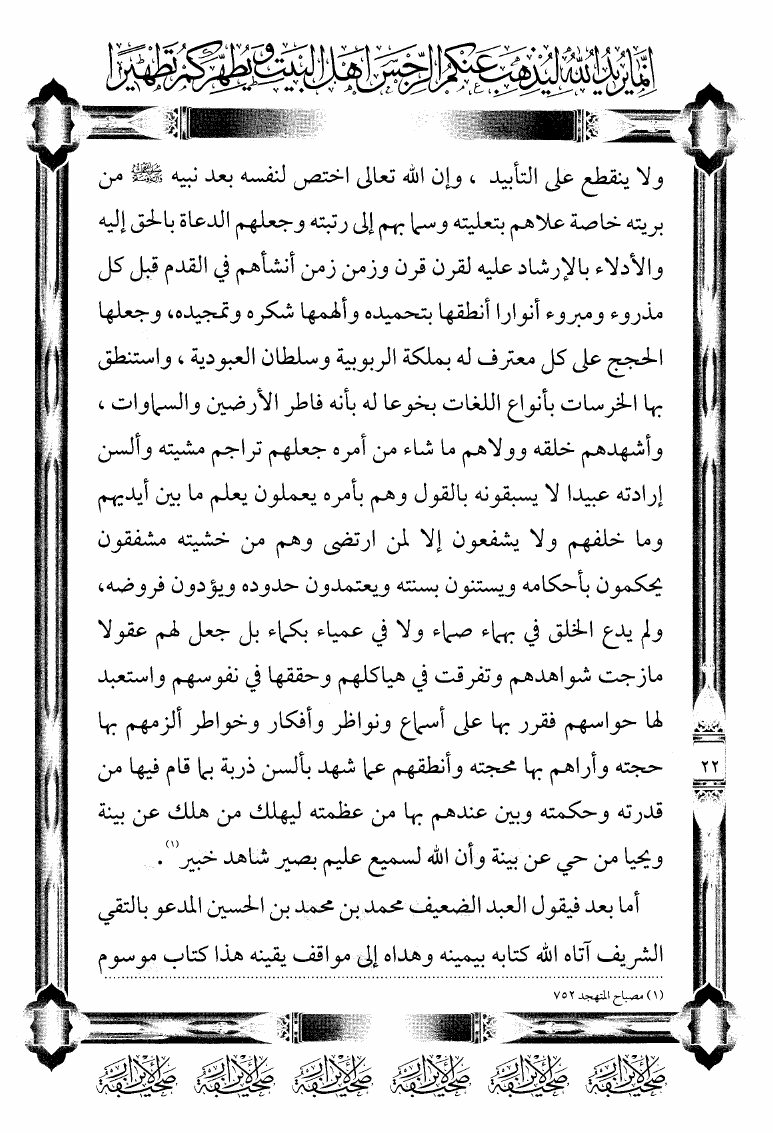 انما يريد الله ليذهب عنكم الرجس اهل البيت ويطهركم تطهيرا
ولا ينقطع على التأبيد ، وإن الله تعالى اختص لنفسه بعد نبيه ﷺ من
بريته خاصة علاهم بتعليته وسما بهم إلى رتبته وجعلهم الدعاة بالحق إليه
والأدلاء بالإرشاد عليه لقرن قرن وزمن زمن أنشأهم في القدم قبل كل
مذروء ومبروء أنوارا أنطقها بتحميده وألهمها شكره وتمجيده، وجعلها
الحجج على كل معترف له بملكة الربوبية وسلطان العبودية ، واستنطق
بها الخرسات بأنواع اللغات بخوعا له بأنه فاطر الأرضين والسماوات ،
وأشهدهم خلقه وولاهم ما شاء من أمره جعلهم تراجم مشيته وألسن
إرادته عبيدا لا يسبقونه بالقول وهم بأمره يعملون يعلم ما بين أيديهم
وما خلفهم ولا يشفعون إلا لمن ارتضى وهم من خشيته مشفقون
يحكمون بأحكامه ويستنون بسنته ويعتمدون حدوده ويؤدون فروضه،
ولم يدع الخلق في بهماء صماء ولا في عمياء بكماء بل جعل لهم عقولا
مازجت شواهدهم وتفرقت في هياكلهم وحققها في نفوسهم واستعبد
لها حواسهم فقرر بها على أسماع ونواظر وأفكار وخواطر ألزمهم بها
حجته وأراهم بها محجته وأنطقهم عما شهد بألسن ذربة بما قام فيها من
قدرته وحكمته وبين عندهم بها من عظمته ليهلك من هلك عن بينة
ويحيا من حي عن بينة وأن الله لسميع عليم بصير شاهد خبير(١).
أما بعد فيقول العبد الضعيف محمد بن محمد بن الحسين المدعو بالتقي
الشريف آتاه الله كتابه بيمينه وهداه إلى مواقف يقينه هذا كتاب موسوم
(١) مصباح المتهجد ٧٥٢
٢٢
صحيفة الابرار صحيفة الابرار صحيفة الابرار صحيفة الابرار صحيفة الابرار صحيفة الابرار